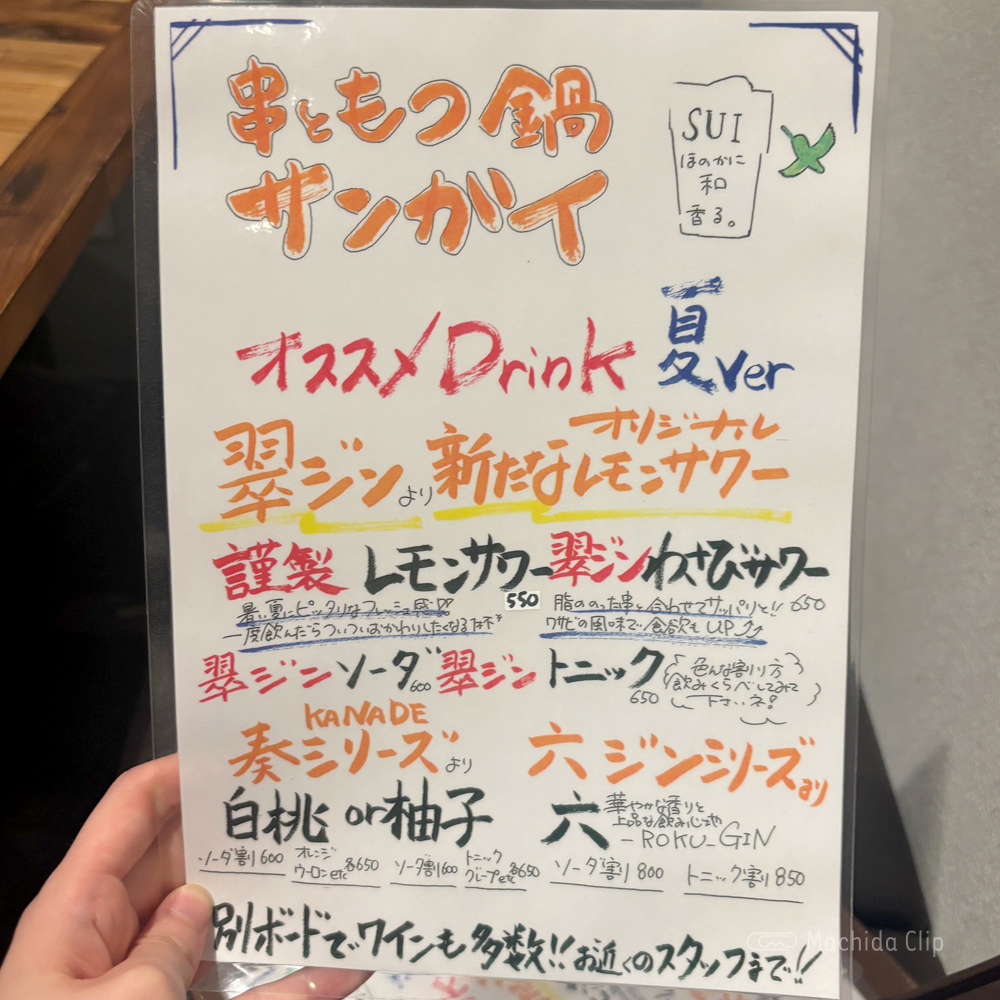 串ともつ鍋
サンガイ
SUI
ほのかに
和
香る。
オススメ Drink 夏 ver
翠ジンより新たなオリジナルレモンサワー
謹製 レモンサワー 550
暑い夏にピッタリなフレッシュ感!!
一度飲んだらついついおかわりしたくなる杯
翠ジンわさびサワー
脂ののった串と合わせてサッパリと!! 650
ワサビの風味で食欲もUP
翠ジンソーダ 600
翠ジントニック 650
色んな割り方
飲みくらべしてみて
下さいネ!
KANADE
奏シリーズより
白桃 or 柚子
ソーダ割600
オレンジ
ウーロンetc 各650
ソーダ割600
トニック
グレープetc 各650
六ジンシリーズより
六 華やかな香りと
上品な飲み心地
-ROKU_GIN
ソーダ割800
トニック割850
別ボードでワインも多数!!お近くのスタッフまで!!
Machida Clip